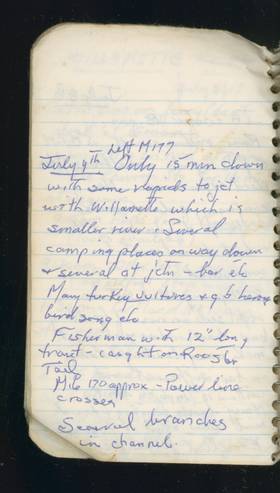 Left M177
July 9th Only 15 min down
with some rapids to jct
with Willamette which is
smaller river. Several
camping places on way down
& several at jctn - bar etc
Many turkey vultures & g b heron
bird song etc
Fisherman with 12" long
trout - caught on Rooster
Tail
Mile 170 approx - Power line
crosses
Several branches
in channel.